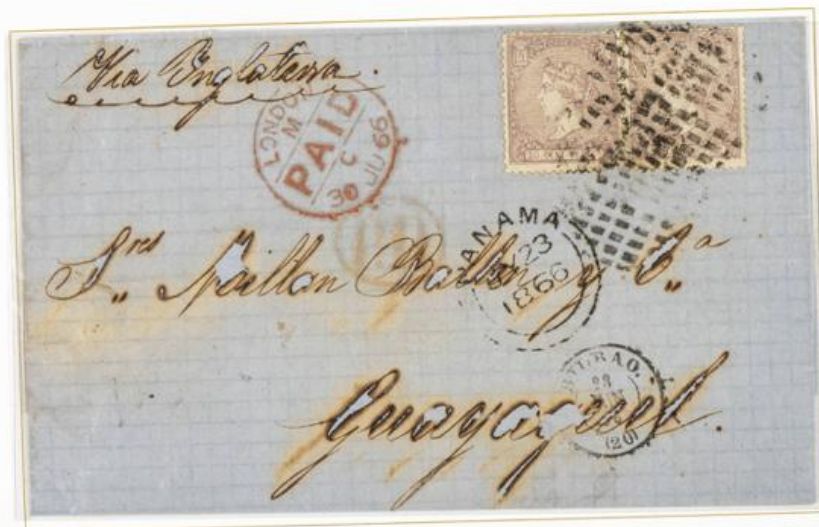 Via Inglaterra.
LONDON
M
PAID
C
30 JU 66
PD
PANAMA
23
1866
S.res Baillon y C.a
BILBAO.
28
(20)
Guayaquil.